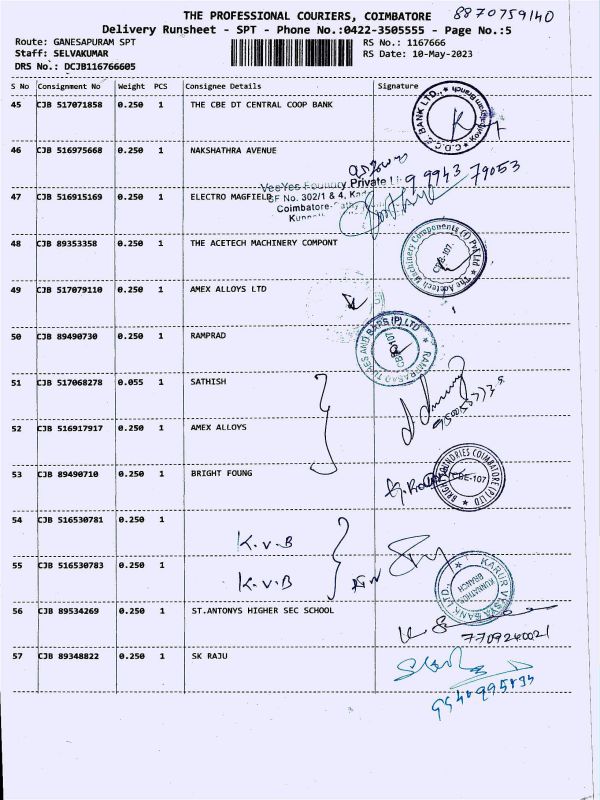 THE PROFESSIONAL COURIERS, COIMBATORE 8870759140
Delivery Runsheet - SPT - Phone No.:0422-3505555 - Page No.:5
Route: GANESAPURAM SPT RS No.: 1167666
Staff: SELVAKUMAR RS Date: 10-May-2023
DRS No.: DCJB116766605
S No Consignment No Weight PCS Consignee Details Signature
45 CJB 517071858 0.250 1 THE CBE DT CENTRAL COOP BANK
C.D.C.C. BANK LTD.,
46 CJB 516975668 0.250 1 NAKSHATHRA AVENUE
99943 79053
VeeYes Foundry Private Li
47 CJB 516915169 0.250 1 ELECTRO MAGFIELD
SF No. 302/1 & 4,
Coimbatore-
48 CJB 89353358 0.250 1 THE ACETECH MACHINERY COMPONT
The Acetech Machinery Components (I) Pvt Ltd
CBE-107.
49 CJB 517079110 0.250 1 AMEX ALLOYS LTD
50 CJB 89490730 0.250 1 RAMPRAD
RAMPRASAD TUBES AND BARS (P) LTD
CBE-107
51 CJB 517068278 0.055 1 SATHISH
52 CJB 516917917 0.250 1 AMEX ALLOYS
53 CJB 89490710 0.250 1 BRIGHT FOUNG
BRIGHT FOUNDRIES COIMBATORE (P) LTD
CBE-107
54 CJB 516530781 0.250 1
K.V.B
55 CJB 516530783 0.250 1
K.V.B
KARUR VYSYA BANK LTD.,
BRANCH
56 CJB 89534269 0.250 1 ST.ANTONYS HIGHER SEC SCHOOL
7709240021
57 CJB 89348822 0.250 1 SK RAJU